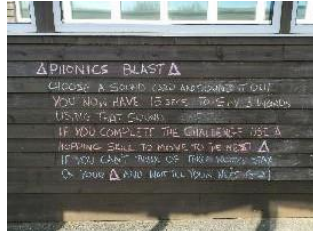 △ PHONICS BLAST △
CHOOSE A SOUND CARD AND SOUND IT OUT
YOU NOW HAVE 15 SECS TO SAY 3 WORDS
USING THAT SOUND
IF YOU COMPLETE THE CHALLENGE USE A
HOPPING SKILL TO MOVE TO THE NEXT △
IF YOU CAN'T THINK OF THREE WORDS STAY
ON YOUR △ AND WAIT TILL YOUR NEXT GO!